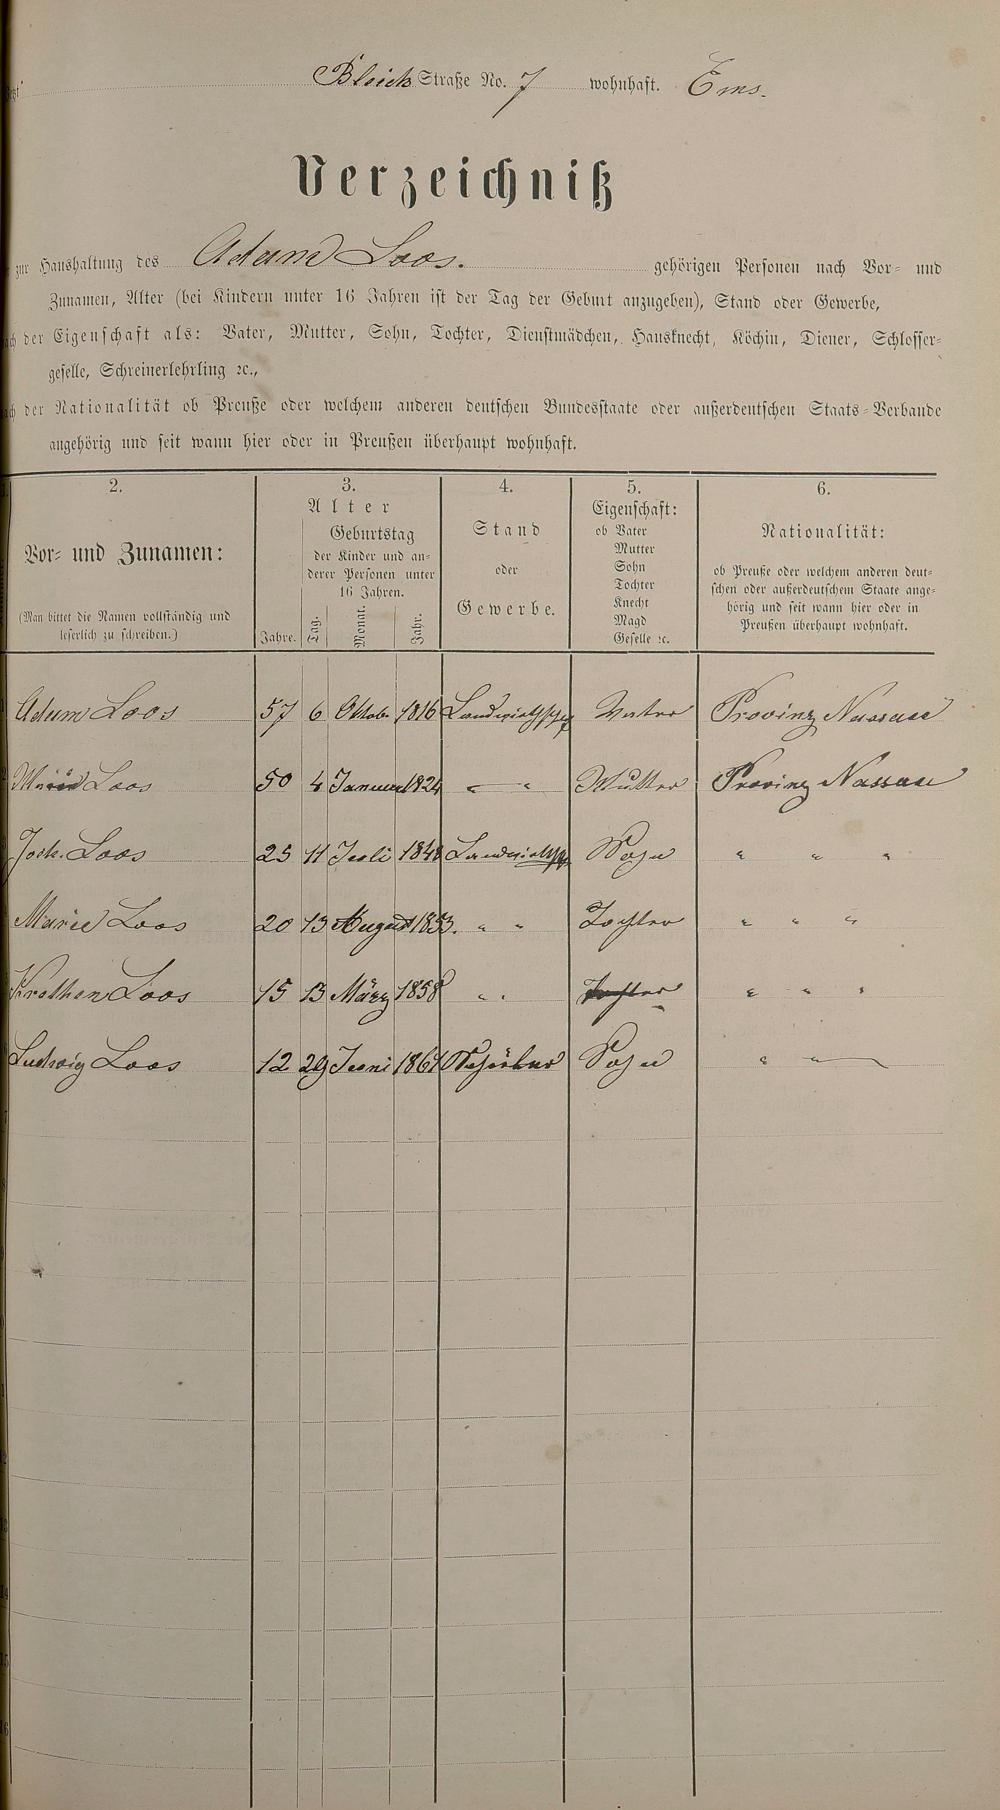 Bleich Straße No. 7 wohnhaft. Ems.
Verzeichniß
zur Haushaltung des Adam Loos. gehörigen Personen nach Vor- und
Zunamen, Alter (bei Kindern unter 16 Jahren ist der Tag der Geburt anzugeben), Stand oder Gewerbe,
der Eigenschaft als: Vater, Mutter, Sohn, Tochter, Dienstmädchen, Hausknecht, Köchin, Diener, Schlosser-
geselle, Schreinerlehrling ꝛc.,
der Nationalität ob Preuße oder welchem anderen deutschen Bundesstaate oder außerdeutschen Staats-Verbande
angehörig und seit wann hier oder in Preußen überhaupt wohnhaft.
2. 3. 4. 5. 6.
Vor- und Zunamen:
(Man bittet die Namen vollständig und
leserlich zu schreiben.)
Alter
Geburtstag
der Kinder und an-
derer Personen unter
16 Jahren.
Jahre. Tag. Monat. Jahr.
Stand
oder
Gewerbe.
Eigenschaft:
ob Vater
Mutter
Sohn
Tochter
Knecht
Magd
Geselle ꝛc.
Nationalität:
ob Preuße oder welchem anderen deut-
schen oder außerdeutschem Staate ange-
hörig und seit wann hier oder in
Preußen überhaupt wohnhaft.
Adam Loos 57 6 Oktob. 1816 Vater Provinz Nassau
Loos 50 4 Januar 1824 " Mutter Provinz Nassau
Joh. Loos 25 11 Juli 1848 Sohn " " "
Marie Loos 20 13 August 1853. " " Tochter " " "
Loos 15 13 März 1858 " " Tochter " " "
Ludwig Loos 12 29 Juni 1861 Schüler Sohn " "